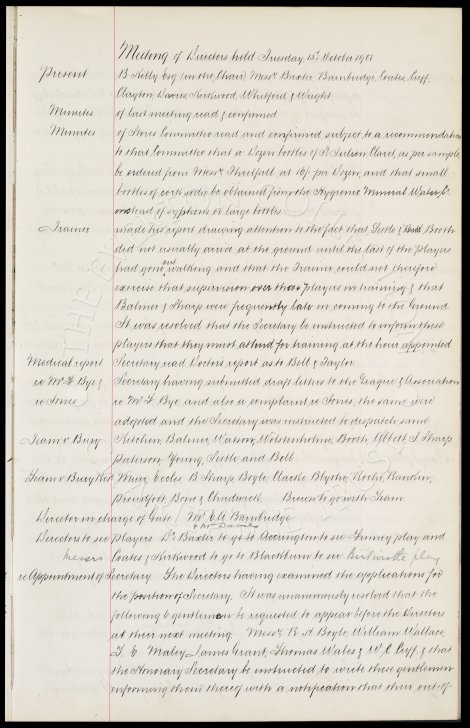 Meeting of Directors held Tuesday 15th October 1901
Present B Kelly Esq (in the Chair) Messrs Baxter Bainbridge, Coates, Cuff,
Clayton, Davies, Kirkwood, Whitford & Wright
Minutes of last meeting read & confirmed
Minutes of Stores Committee read and confirmed subject to a recommendation
to that Committee that a Dozen bottles of St Julien Claret, as per sample,
be ordered from Messrs Threlfall, at 16/- per Dozen, and that small
bottles of cork soda be obtained from the Hygienic Mineral Water Co
instead of syphons or large bottles
Trainer made his report drawing attention to the fact that, Settle & Booth
did not usually arrive at the ground until the last of the players
had gone out walking and that the Trainer could not therefore
exercise that supervision over these players in training & that
Balmer & Sharp were frequently late in coming to the Ground
It was resolved that the Secretary be instructed to inform these
players that they must attend for training at the hour appointed
Medical report Secretary read Doctors report as to Bell & Taylor
re Mr F Bye & Secretary having submitted draft letters to the League & Association
re Jones re Mr F Bye and also a complaint re Jones, the same were
adopted and the Secretary was instructed to dispatch same
Team v Bury Kitchen, Balmer, Watson, Wolstenholme, Booth, Abbott, J Sharp
Paterson Young, Settle and Bell
Team v Bury Res Muir, Eccles, B Sharp Boyle, Clarke, Blythe, Roche, Rankin,
Proudfoot, Bone & Chadwick Brown to go with Team
Director in charge of Gate Mr E A Bainbridge
& Mr Davies
Directors to see Players Dr Baxter to go to Accrington to see Finney play and
Messrs Coates & Kirkwood to go to Blackburn to see play
re Appointment of Secretary. The Directors having examined the applications for
the position of Secretary. It was unanimously resolved that the
following 6 gentlemen be requested to appear before the Directors
at their next meeting. Messrs R A Boyle, William Wallace,
T E Maley, James Grant, Thomas Wales & W C Cuff, & that
the Honorary Secretary be instructed to write these gentlemen
informing them thereof with a notification that their out-of-